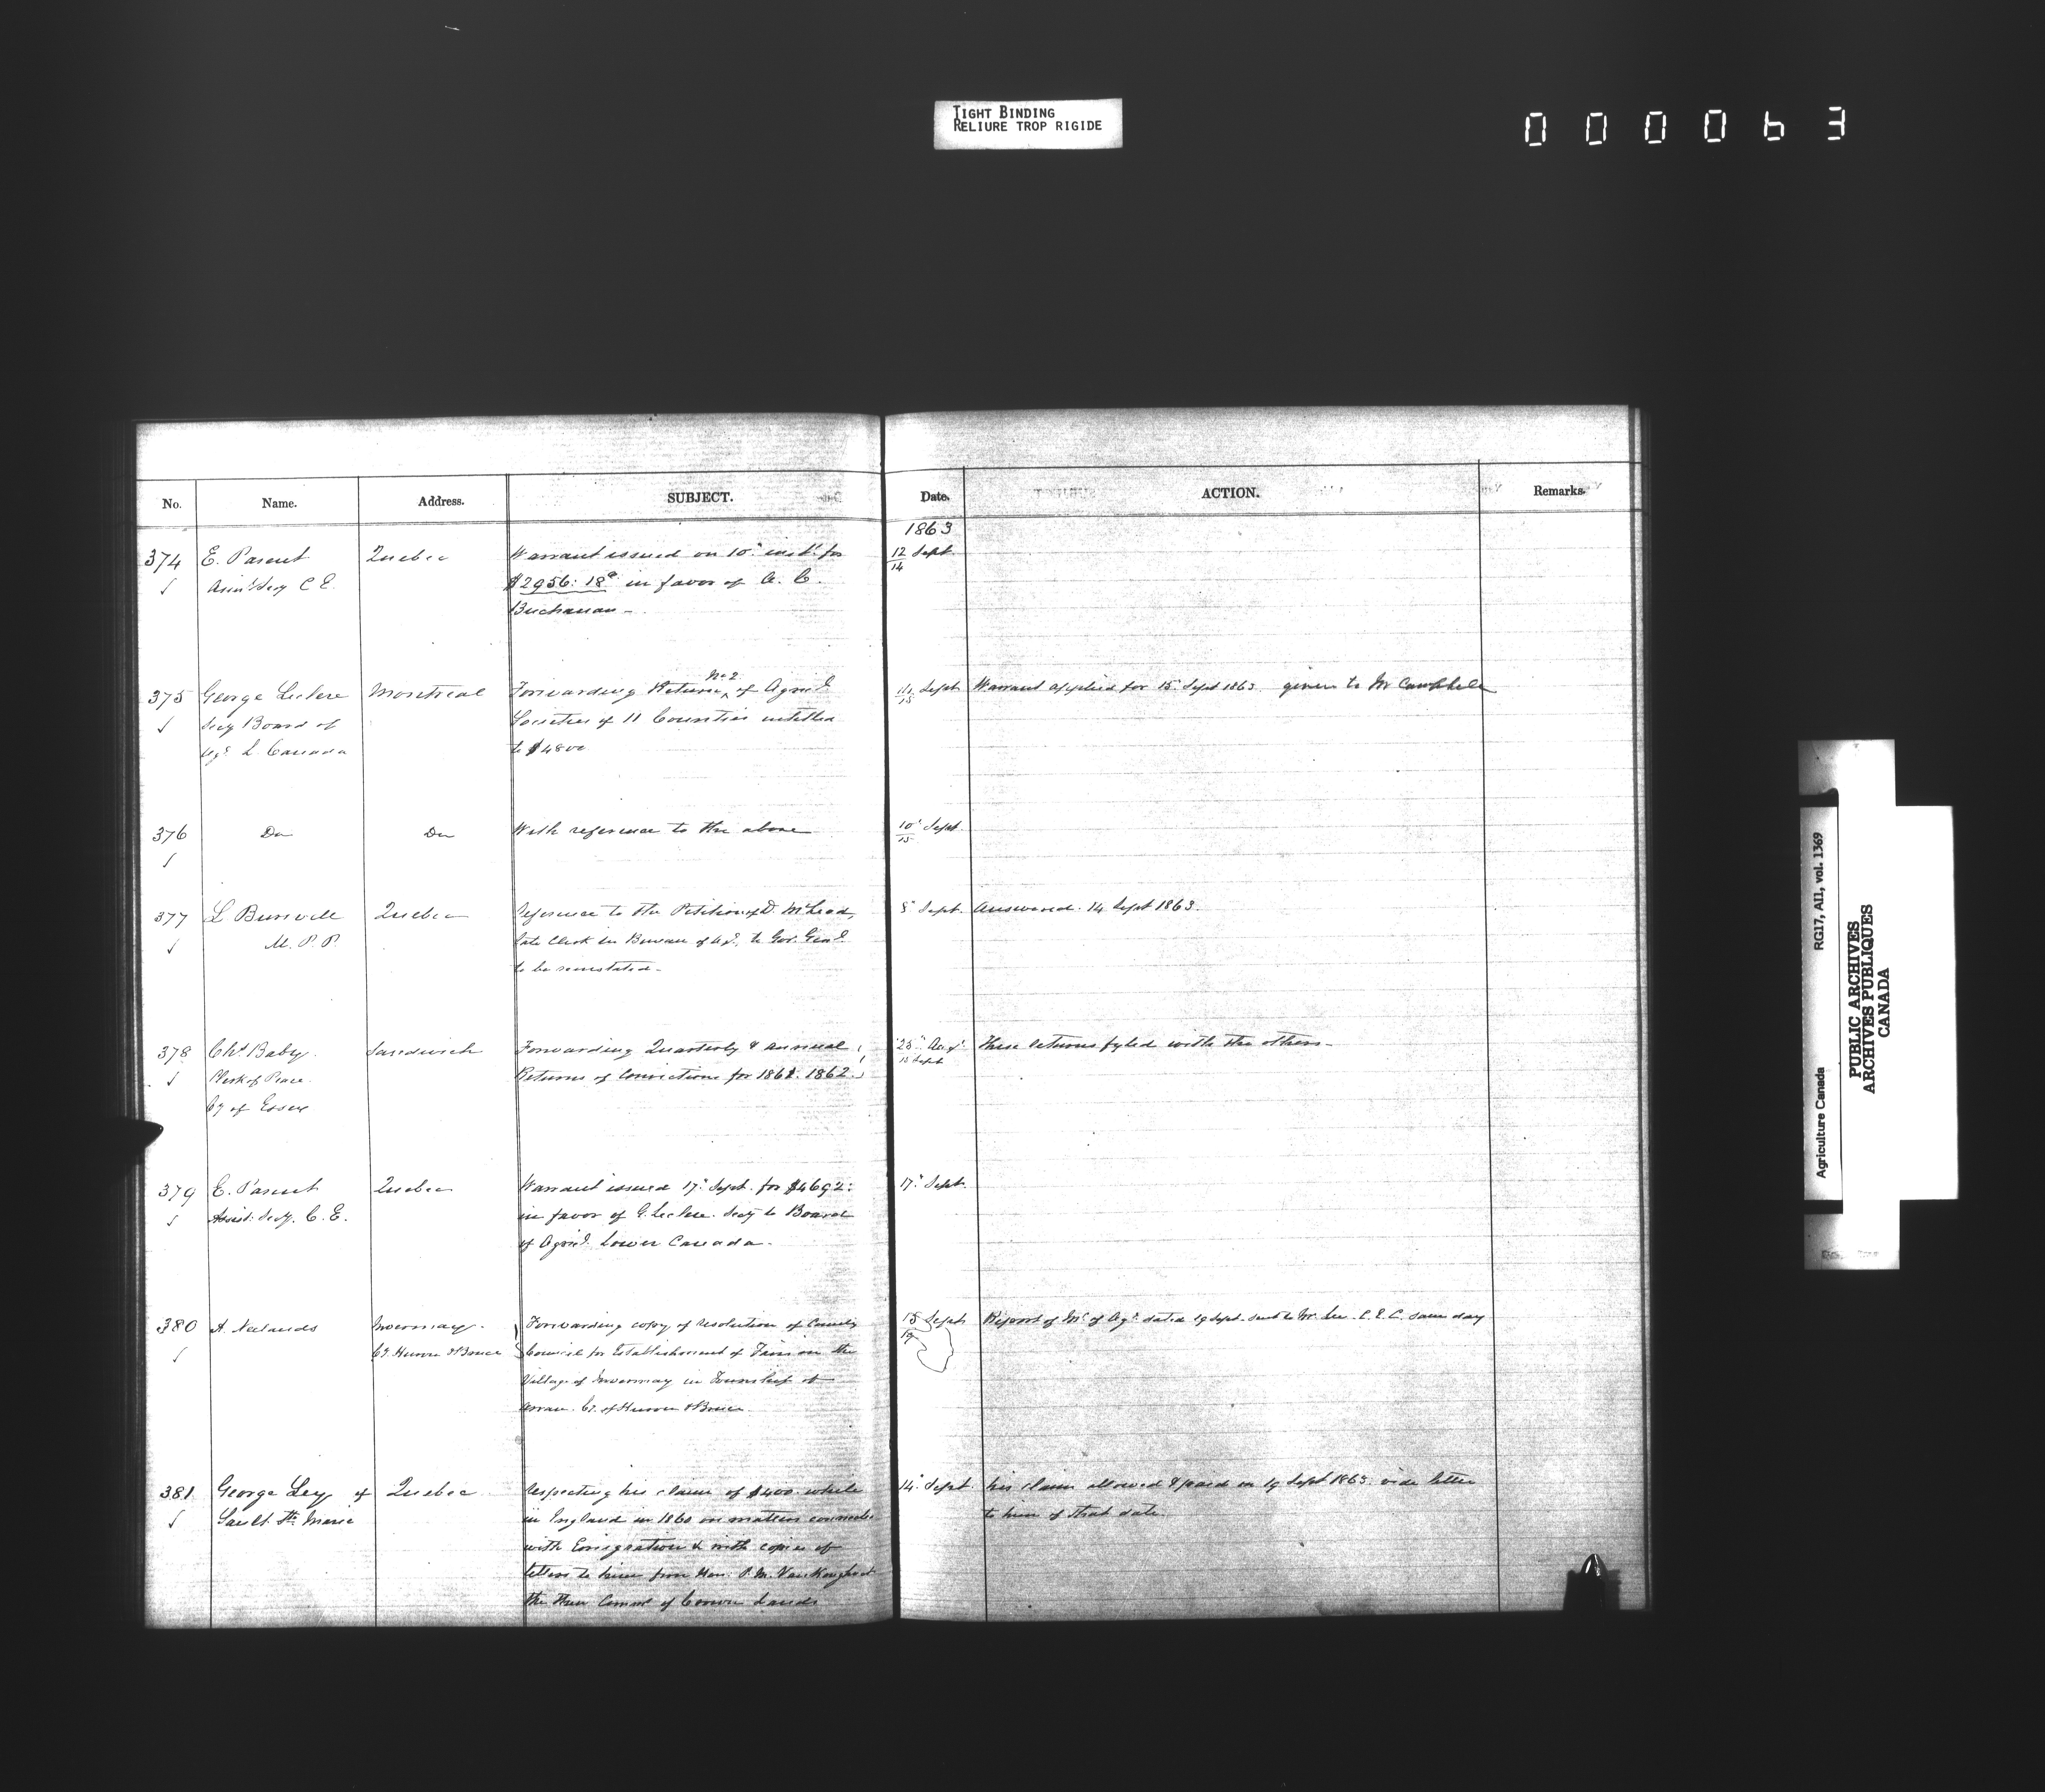 TIGHT BINDING
RELIURE TROP RIGIDE
000063
No. Name. Address. SUBJECT. Date. ACTION. Remarks.
1863
374 E. Parent Quebec Warrant issued on 10th inst. for 12 Sept
Assist Secy C E. $2956: 18c in favor of A. C. 14
Buchanan -
No 2
375 George Leclere Montreal Forwarding Returns ^ of Agricl 11 Sept Warrant applied for 15 Sept 1863. given to Mr Campbell
Secy Board of Societies of 11 Counties entitled 15
Agr. L. Canada to $4800
376 Do Do With reference to the above 10 Sept
15
377 L Burwell Quebec Reference to the Petition of D. McLeod, 8 Sept. Answered. 14 Sept 1863.
M. P. P. late Clerk in Bureau of Agr. to Gov. Genl
to be reinstated -
378 Chs Baby. Sandwich Forwarding Quarterly & Annual 28 Augt These returns fyled with the others -
Clerk of Peace. Returns of Convictions for 1861. 1862. 15 Sept
Cy of Essex
379 E. Parent Quebec Warrant issued 17th Sept. for $4692: 17th Sept.
Assist. Secy. C. E. in favor of G. Leclere. Secy to Board
of Agricl. Lower Canada -
380 A. Neelands Invermay - Forwarding copy of resolution of County 15 Sept Report of Mr of Agr. dated 19 Sept. sent to Mr. Lee. C. E. C. same day
Cs. Huron & Bruce Council for Establishment of Fairs in the 19
Village of Invermay in Township of
Arran. Cs. of Huron & Bruce.
381 George Ley of Quebec Respecting his claim of $400 while 14 Sept his claim allowed & paid on 19 Sept 1863. vide letter
Sault. Ste Marie in England in 1860 on matters connected to him of that date.
with Emigration & with copies of
letters to him from Hon. P. M. VanKoughnet
the then Commr of Crown Lands
Agriculture Canada RG17, AII, vol. 1369
PUBLIC ARCHIVES
ARCHIVES PUBLIQUES
CANADA